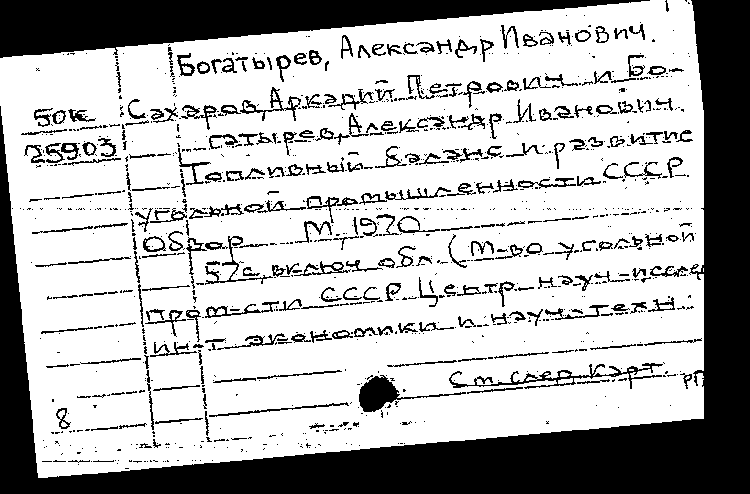 Богатырев, Александр Иванович.
50к Сахаров, Аркадий Петрович и Бо-
25903 гатырев, Александр Иванович.
Топливный баланс и развитие
угольной промышленности СССР
Обзор М, 1970
57с, включ обл. (М-во угольной
пром-сти СССР Центр. науч-исслед
ин-т экономики и науч.-техн.
См. след карт. РП
8